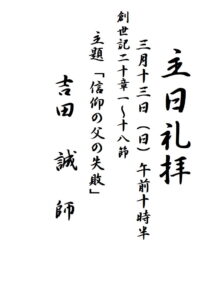 主日礼拝
三月十三日（日）午前十時半
創世記二十章一～十八節
主題「信仰の父の失敗」
吉田　誠　師